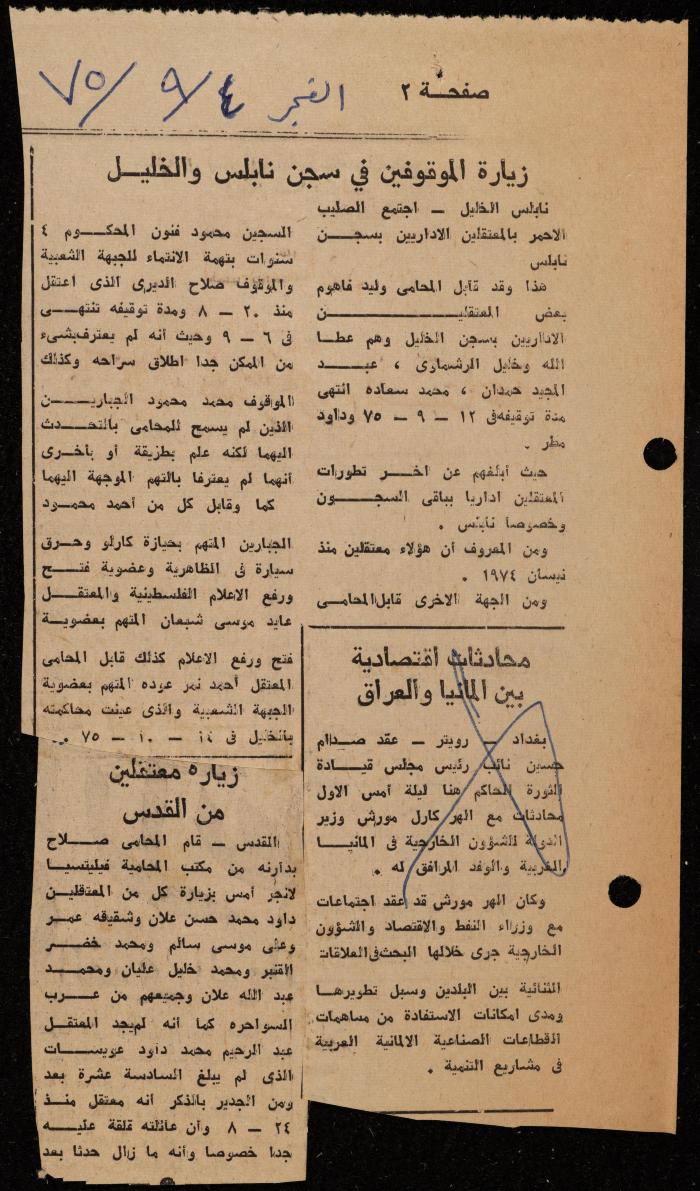 صفحة ٢
الفجر ٧٥/٩/٤
زيارة الموقوفين في سجن نابلس والخليل
نابلس الخليل – اجتمع الصليب
الاحمر بالمعتقلين الاداريين بسجن
نابلس
هذا وقد قابل المحامى وليد فاهوم
بعض المعتقلين
الاداريين بسجن الخليل وهم عطا
الله وخليل الرشماوى ، عبد
المجيد حمدان ، محمد سعاده انتهى
مدة توقيفه فى ١٢ – ٩ – ٧٥ وداود
مطر .
حيث أبلغهم عن اخر تطورات
المعتقلين اداريا بباقى السجون
وخصوصا نابلس .
ومن المعروف أن هؤلاء معتقلين منذ
نيسان ١٩٧٤ .
ومن الجهة الاخرى قابل المحامى
السجين محمود فنون المحكوم ٤
سنوات بتهمة الانتماء للجبهة الشعبية
والموقوف صلاح الديرى الذى اعتقل
منذ ٢٠ – ٨ ومدة توقيفه تنتهى
فى ٦ – ٩ وحيث أنه لم يعترف بشىء
من الممكن جدا اطلاق سراحه وكذلك
الموقوف محمد محمود الجبارين
الذين لم يسمح للمحامى بالتحدث
اليهما لكنه علم بطريقة أو بأخرى
أنهما لم يعترفا بالتهم الموجهة اليهما
كما وقابل كل من أحمد محمود
الجبارين المتهم بحيازة كارلو وحرق
سيارة فى الظاهرية وعضوية فتح
ورفع الاعلام الفلسطينية والمعتقل
عايد موسى شبعان المتهم بعضوية
فتح ورفع الاعلام كذلك قابل المحامى
المعتقل أحمد نمر عوده المتهم بعضوية
الجبهة الشعبية والذى عينت محاكمته
بالخليل فى ١٤ – ١٠ – ٧٥ ..
محادثات اقتصادية
بين المانيا والعراق
بغداد – رويتر – عقد صدام
حسين نائب رئيس مجلس قيادة
الثورة الحاكم هنا ليلة أمس الاول
محادثات مع الهر كارل مورش وزير
الدولة للشؤون الخارجية فى المانيا
الغربية والوفد المرافق له .
وكان الهر مورش قد عقد اجتماعات
مع وزراء النفط والاقتصاد والشؤون
الخارجية جرى خلالها البحث فى العلاقات
الثنائية بين البلدين وسبل تطويرها
ومدى امكانات الاستفادة من مساهمات
القطاعات الصناعية الالمانية العربية
فى مشاريع التنمية .
زياره معتقلين
من القدس
القدس – قام المحامى صلاح
بدارنه من مكتب المحامية فيليتسيا
لانجر أمس بزيارة كل من المعتقلين
داود محمد حسن علان وشقيقه عمر
وعلى موسى سالم ومحمد خضر
القنبر ومحمد خليل عليان ومحمد
عبد الله علان وجميعهم من عرب
السواحره كما أنه لم يجد المعتقل
عبد الرحيم محمد داود عويسات
الذى لم يبلغ السادسة عشرة بعد
ومن الجدير بالذكر أنه معتقل منذ
٢٤ – ٨ وأن عائلته قلقة عليه
جدا خصوصا وأنه ما زال حدثا بعد